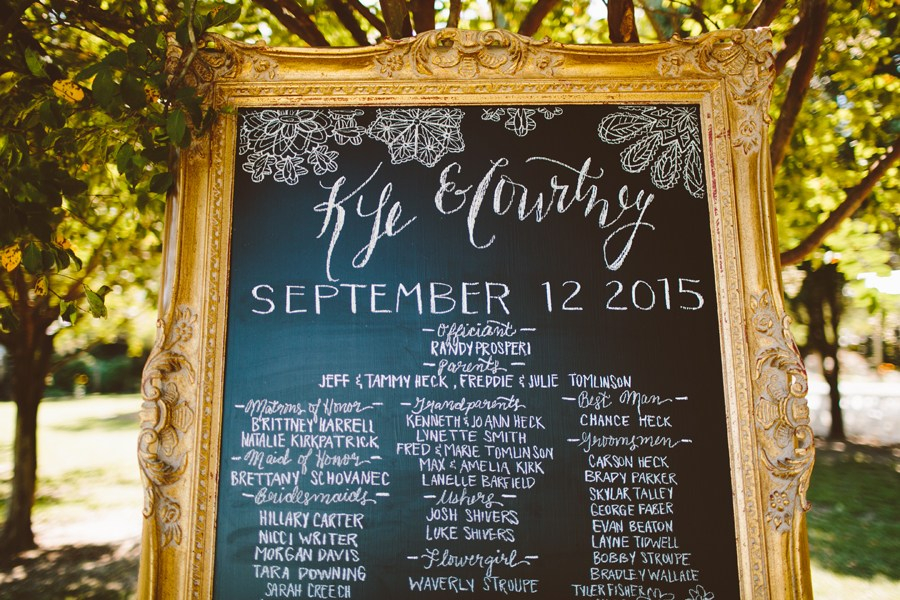 Kyle & Courtney
SEPTEMBER 12 2015
Officiant
RANDY PROSPERI
Parents
JEFF & TAMMY HECK, FREDDIE & JULIE TOMLINSON
Matrons of Honor
BRITTNEY HARRELL
NATALIE KIRKPATRICK
Maid of Honor
BRETTANY SCHOVANEC
Bridesmaids
HILLARY CARTER
NICCI WRITER
MORGAN DAVIS
TARA DOWNING
SARAH CREECH
Grandparents
KENNETH & JO ANN HECK
LYNETTE SMITH
FRED & MARIE TOMLINSON
MAX & AMELIA KIRK
LANELLE BARFIELD
Ushers
JOSH SHIVERS
LUKE SHIVERS
Flowergirl
WAVERLY STROUPE
Best Man
CHANCE HECK
Groomsmen
CARSON HECK
BRADY PARKER
SKYLAR TALLEY
GEORGE FABER
EVAN BEATON
LAYNE TIDWELL
BOBBY STROUPE
BRADLEY WALLACE
TYLER FISHER